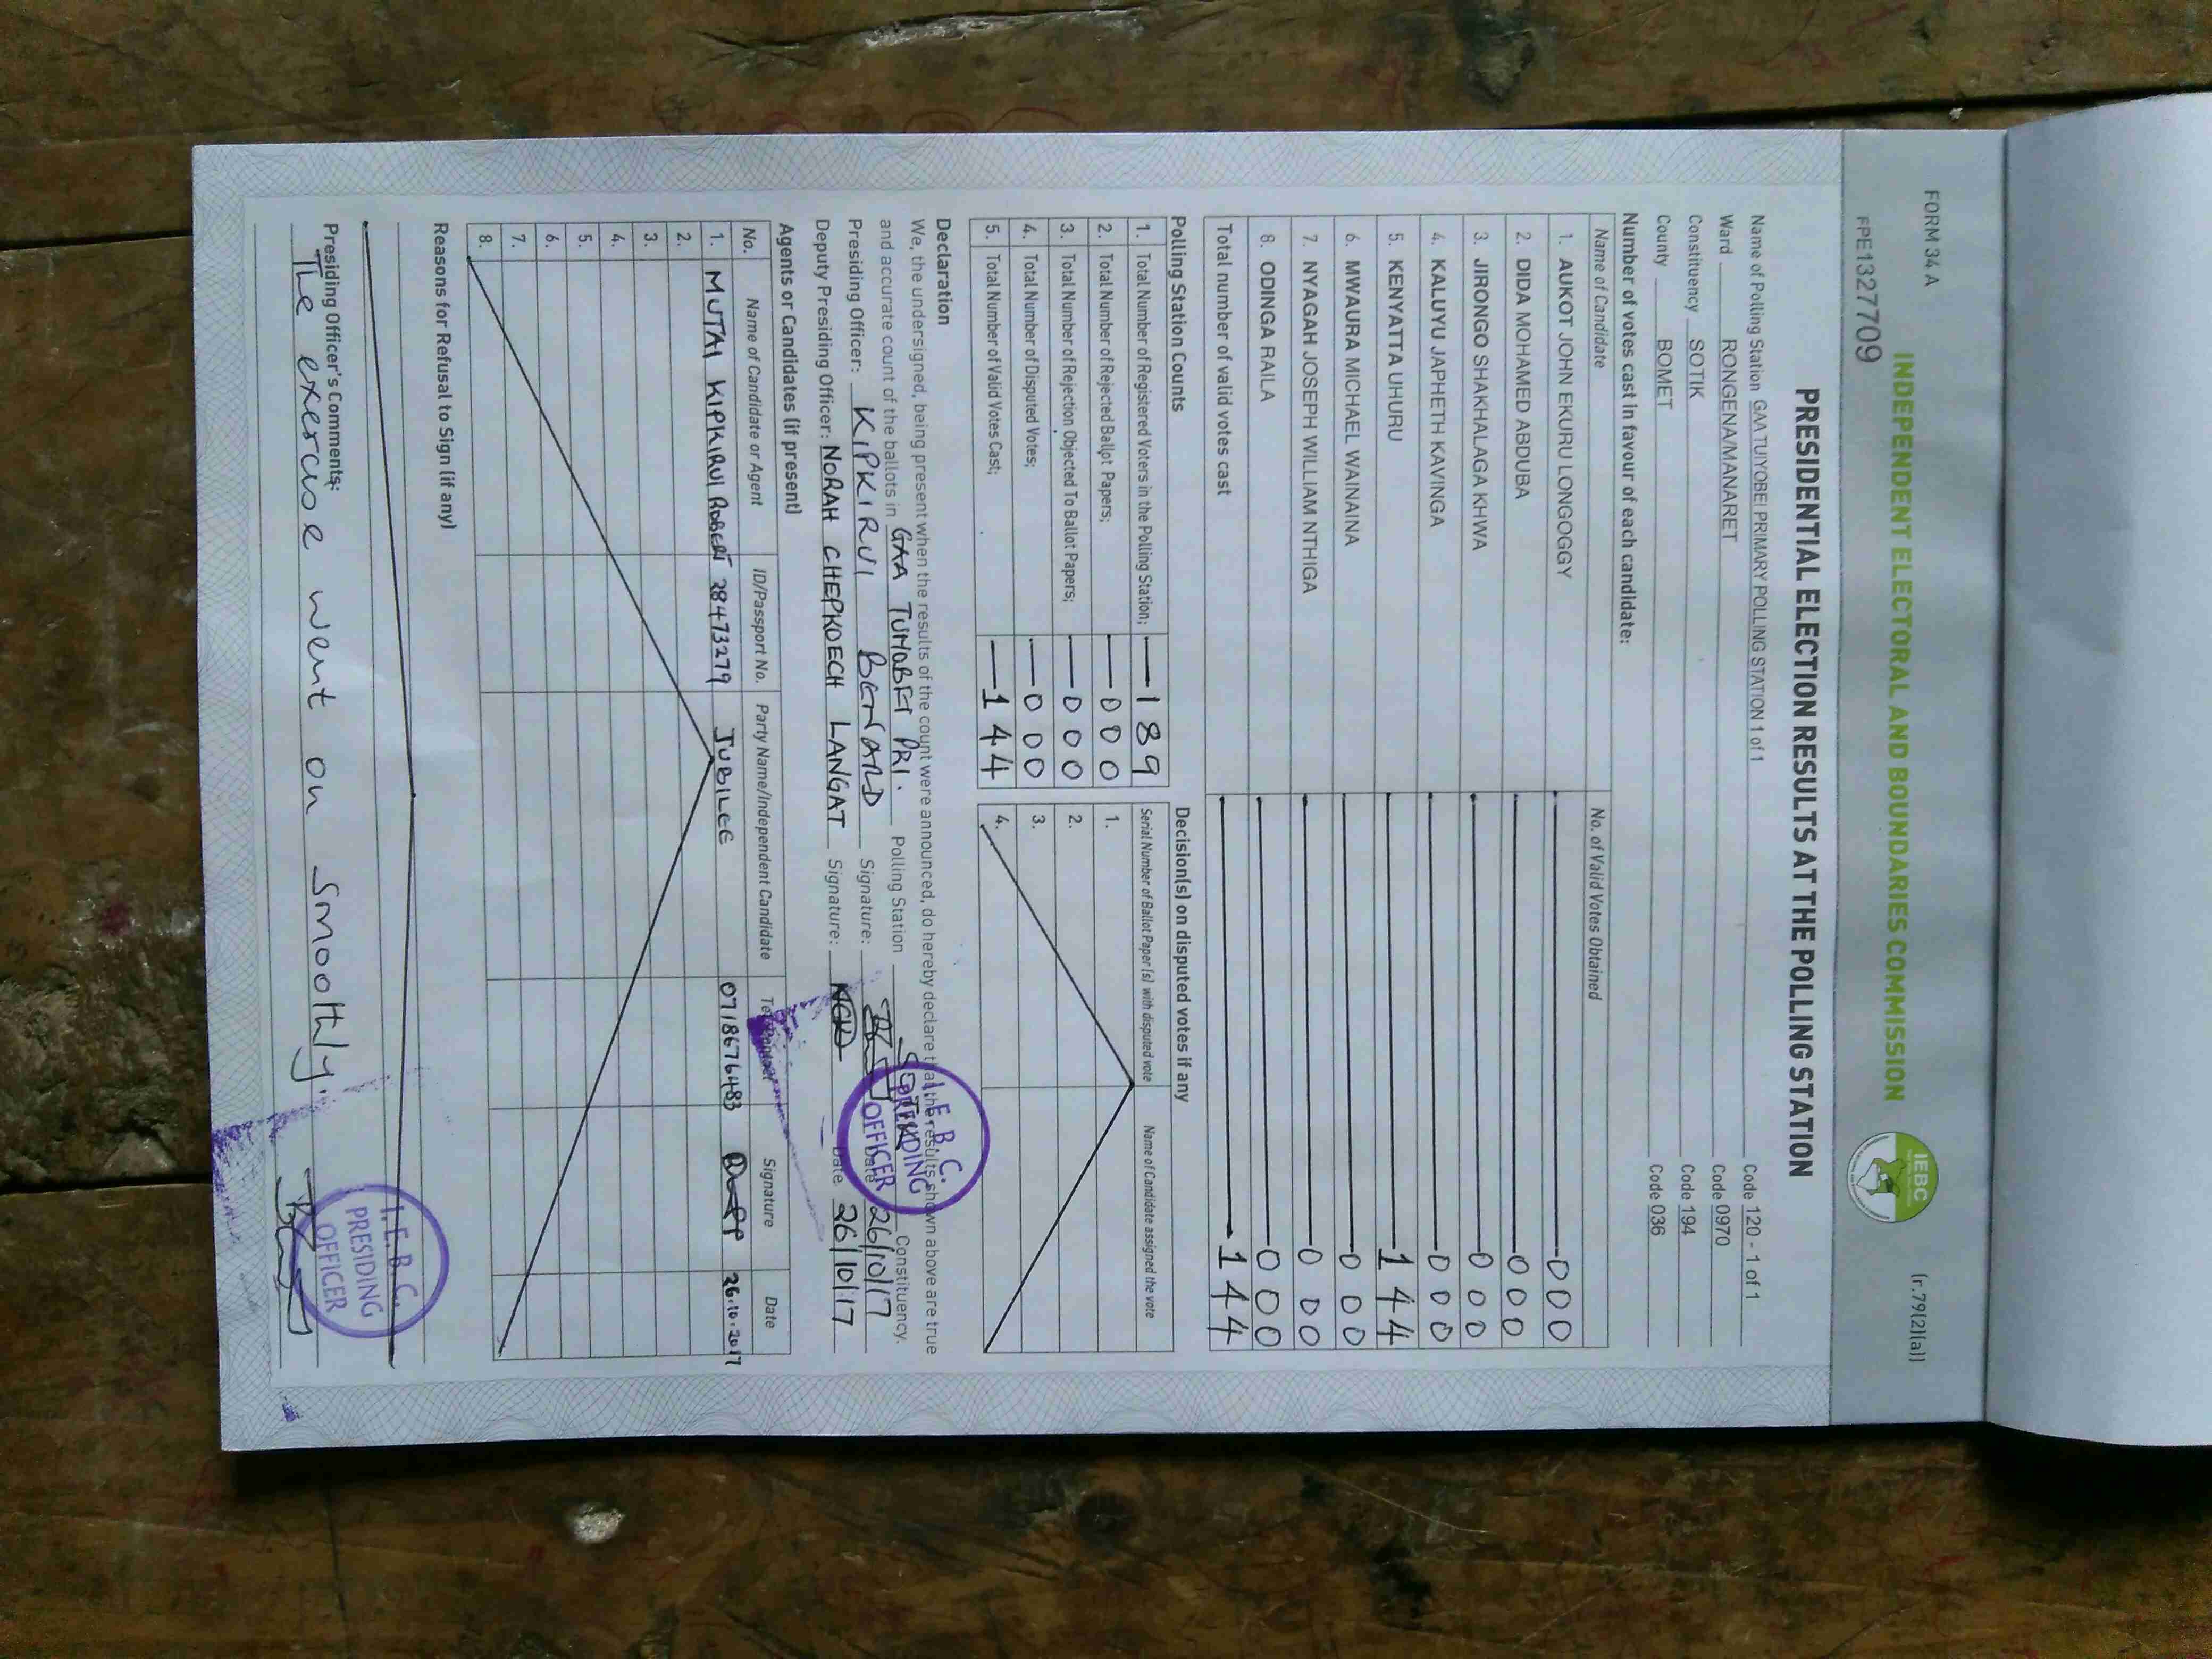 FORM 34 A
(r.79(2)(a))
INDEPENDENT ELECTORAL AND BOUNDARIES COMMISSION
IEBC
PE1327709
PRESIDENTIAL ELECTION RESULTS AT THE POLLING STATION
Name of Polling Station GAA TUIYOBEI PRIMARY POLLING STATION 1 of 1 Code 120 - 1 of 1
Ward RONGENA/MANARET Code 0970
Constituency SOTIK Code 194
County BOMET Code 036
Number of votes cast in favour of each candidate:
Name of Candidate No. of Valid Votes Obtained
1. AUKOT JOHN EKURU LONGOGGY 000
2. DIDA MOHAMED ABDUBA 000
3. JIRONGO SHAKHALAGA KHWA 000
4. KALUYU JAPHETH KAVINGA 000
5. KENYATTA UHURU 144
6. MWAURA MICHAEL WAINAINA 000
7. NYAGAH JOSEPH WILLIAM NTHIGA 000
8. ODINGA RAILA 000
Total number of valid votes cast 144
Polling Station Counts
1. Total Number of Registered Voters in the Polling Station; 189
2. Total Number of Rejected Ballot Papers; 000
3. Total Number of Rejection Objected To Ballot Papers; 000
4. Total Number of Disputed Votes; 000
5. Total Number of Valid Votes Cast; 144
Decision(s) on disputed votes if any
Serial Number of Ballot Paper (s) with disputed vote Name of Candidate assigned the vote
1.
2.
3.
4.
Declaration
We, the undersigned, being present when the results of the count were announced, do hereby declare that the results shown above are true
and accurate count of the ballots in GAA TUIYOBEI PRI. Polling Station SOTIK Constituency.
Presiding Officer: KIPKIRUI BENARD Signature: Date 26/10/17
Deputy Presiding Officer: NORAH CHEPKOECH LANGAT Signature: Date 26/10/17
I.E.B.C.
PRESIDING
OFFICER
Agents or Candidates (if present)
No. Name of Candidate or Agent ID/Passport No. Party Name/Independent Candidate Tel. Contact Signature Date
1. MUTAI KIPKIRUI ROBERT 28473279 JUBILEE 0718676483 26.10.2017
2.
3.
4.
5.
6.
7.
8.
Reasons for Refusal to Sign (if any)
Presiding Officer's Comments:
The exercise went on smoothly.
I.E.B.C.
PRESIDING
OFFICER